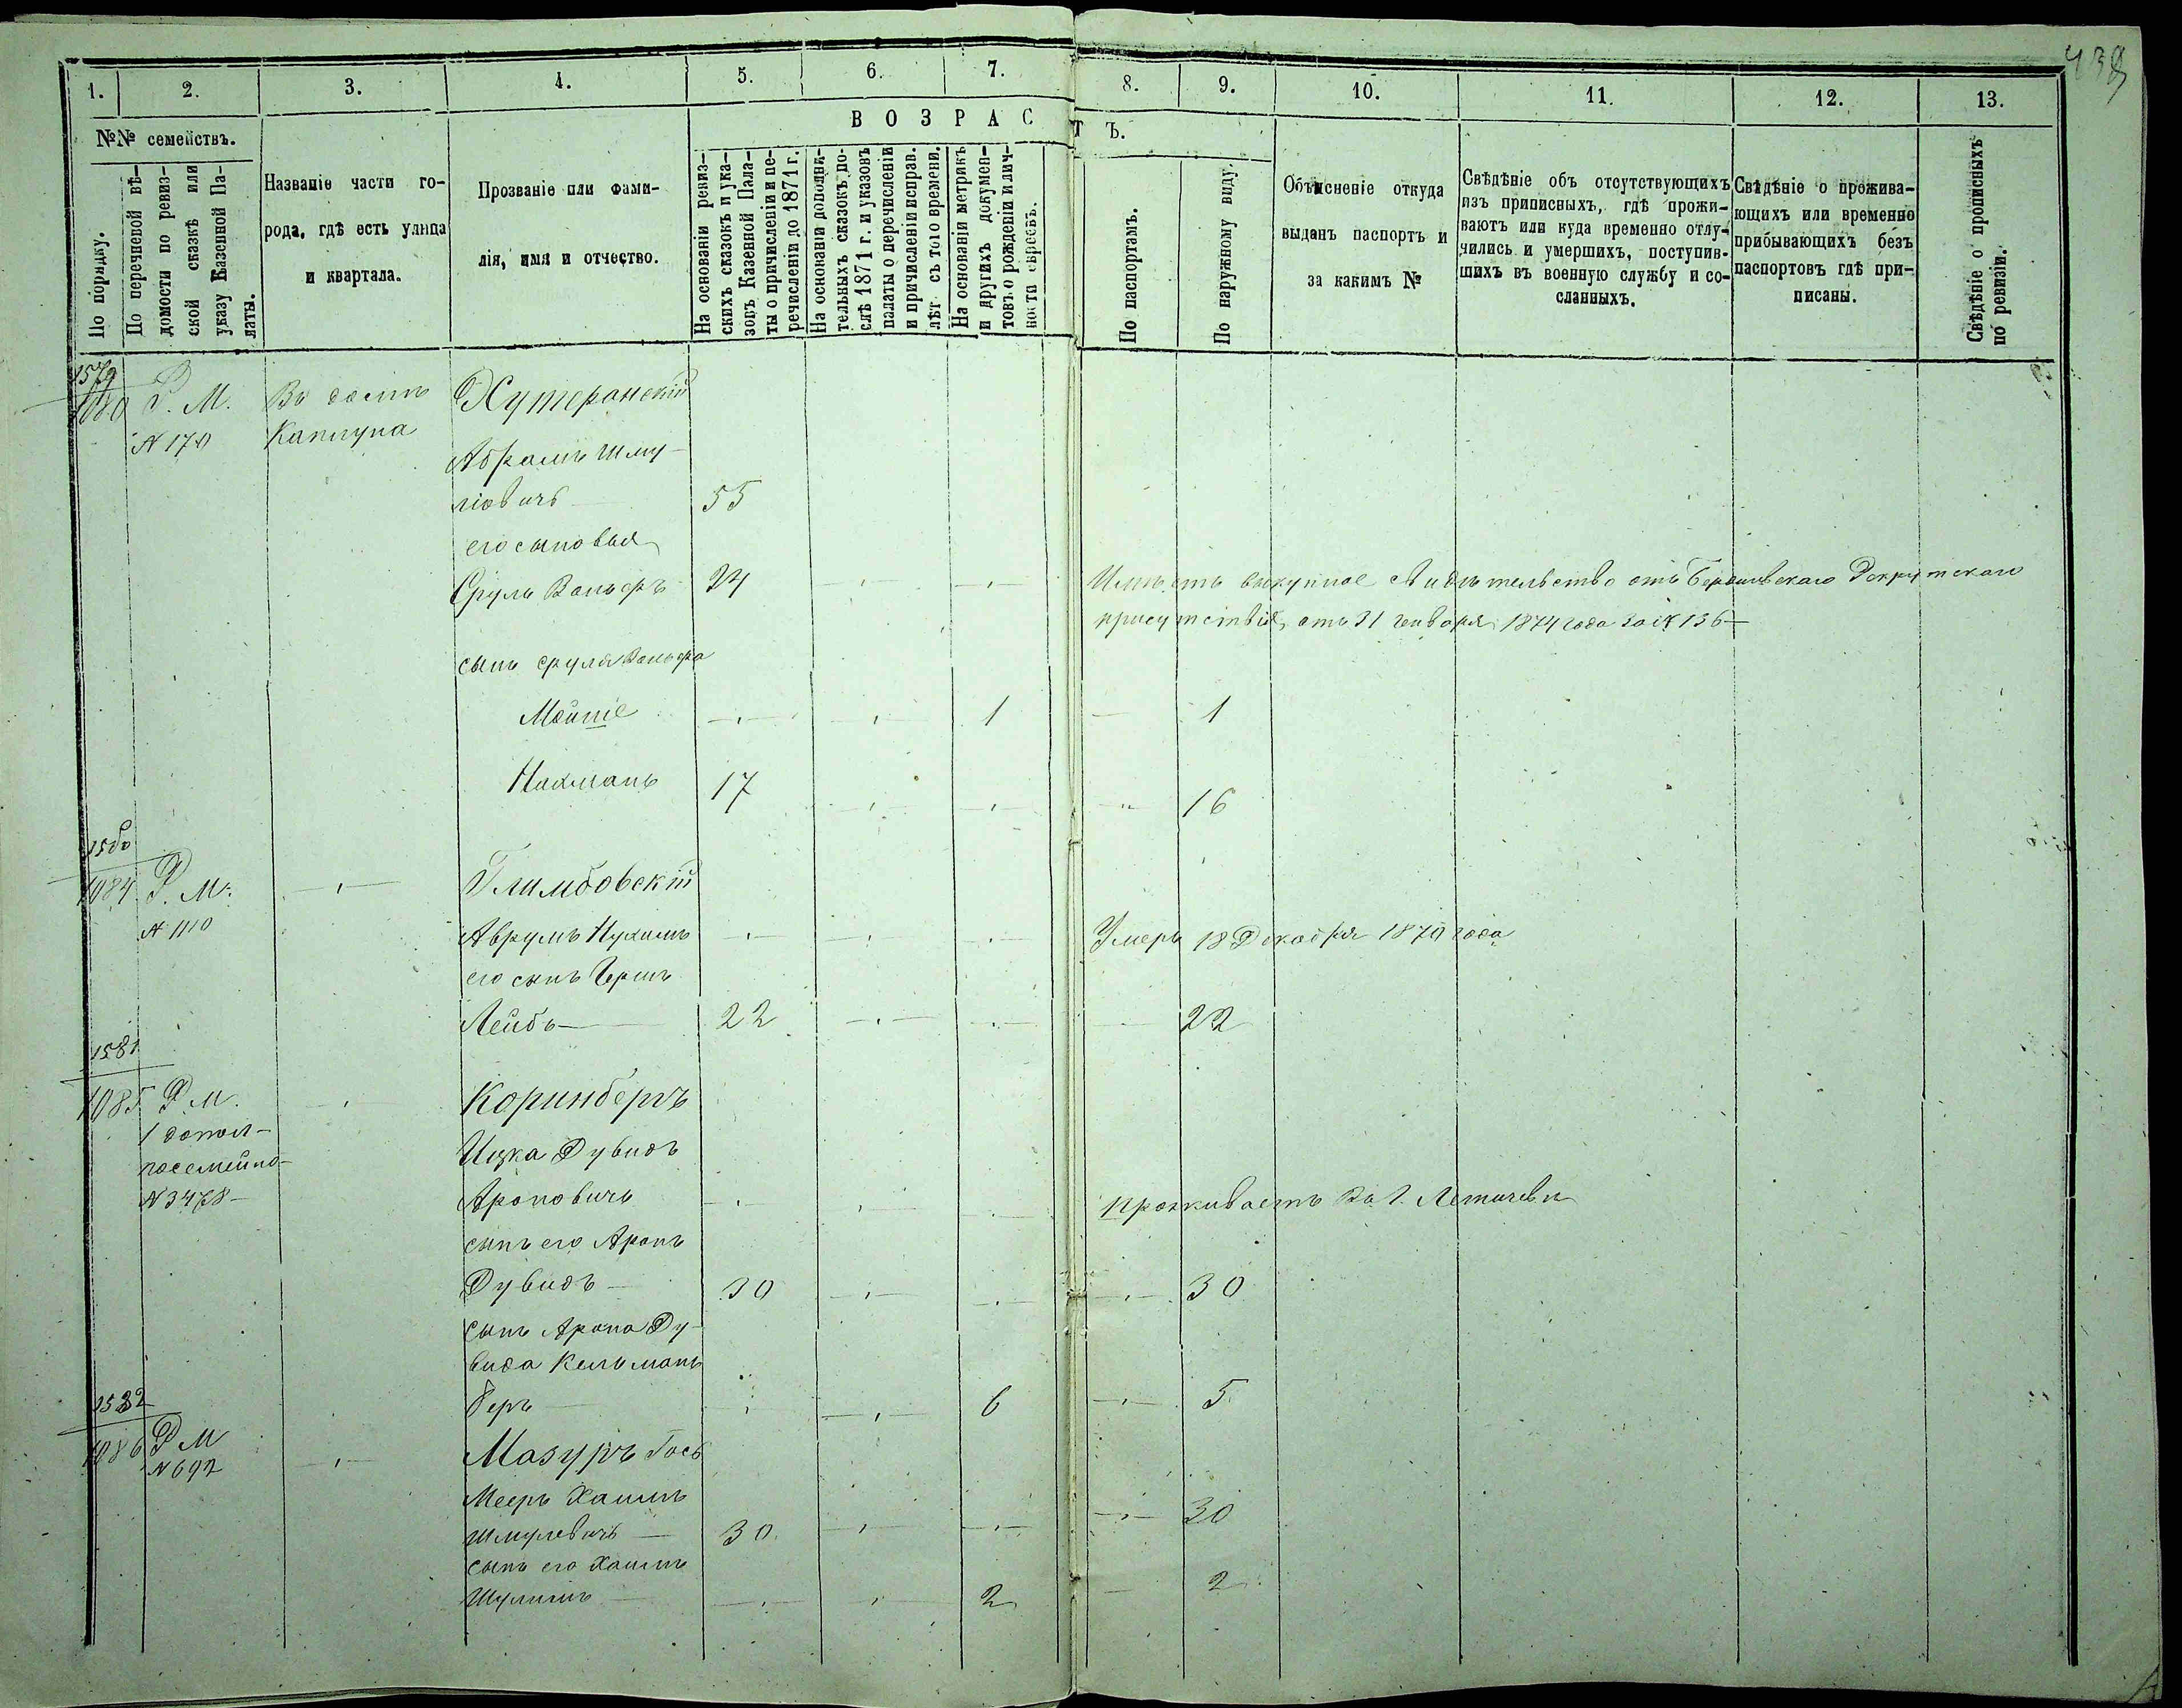 438
1. 2. 3. 4. 5. 6. 7. 8. 9. 10. 11. 12. 13.
№№ семействъ.
В О З Р А С Т Ъ.
По порядку.
По перечневой вѣ-
домости по ревиз-
ской сказкѣ или
указу Казенной Па-
латы.
Названіе части го-
рода, гдѣ есть улица
и квартала.
Прозваніе или фами-
лія, имя и отчество.
На основаніи ревиз-
скихъ сказокъ и ука-
зовъ Казенной Пала-
ты о причисленіи и пе-
речисленіи до 1871 г.
На основаніи дополни-
тельныхъ сказокъ по-
слѣ 1871 г. и указовъ
палаты о перечисленіи
и причисленіи исправ.
лѣт съ того времени.
На основаніи метрикъ
и другихъ докумен-
товъ о рожденіи и лич-
ности евреевъ.
По паспортамъ.
По наружному виду.
Объясненіе откуда
выданъ паспортъ и
за какимъ №
Свѣдѣніе объ отсутствующихъ
изъ приписныхъ, гдѣ прожи-
ваютъ или куда временно отлу-
чились и умершихъ, поступив-
шихъ въ военную службу и со-
сланныхъ.
Свѣдѣніе о прожива-
ющихъ или временно
прибывающихъ безъ
паспортовъ гдѣ при-
писаны.
Свѣдѣніе о прописныхъ
по ревизіи.
1579
Р. М. Въ домѣ Хутеранскій
Каплуна
Абрамъ Шму-
ліовичъ — 55
его сыновья
Сруль Вольфъ 24 Имѣетъ выкупное свидѣтельство отъ Рекрутскаго
присутствія, отъ 31 Генваря 1874 года за № 136 —
сынъ Сруля Вольфа
Мойше 1 1
Нахманъ 17 16
1580
1084 Р. М. Глимбовскій
Аврумъ Нухимъ Умеръ 18 Декабря 1870 года
его сынъ Гершъ
Лейбъ — 22 22
1581
1085 Р. М. Коринбергъ
1 допол-
посемейно- Ицка Дувидъ
№ 3478 — Ароновичъ Проживаетъ въ г. Летичевѣ
сынъ его Аронъ
Дувидъ — 30 30
сынъ Арона Ду-
вида Кельманъ
Беръ 6 5
1582
1086 Р М Мазуръ Гось
№ 692
Мееръ Хаимъ
Шмулевичъ — 30 30
сынъ его Хаимъ
Шулимъ — 2 2